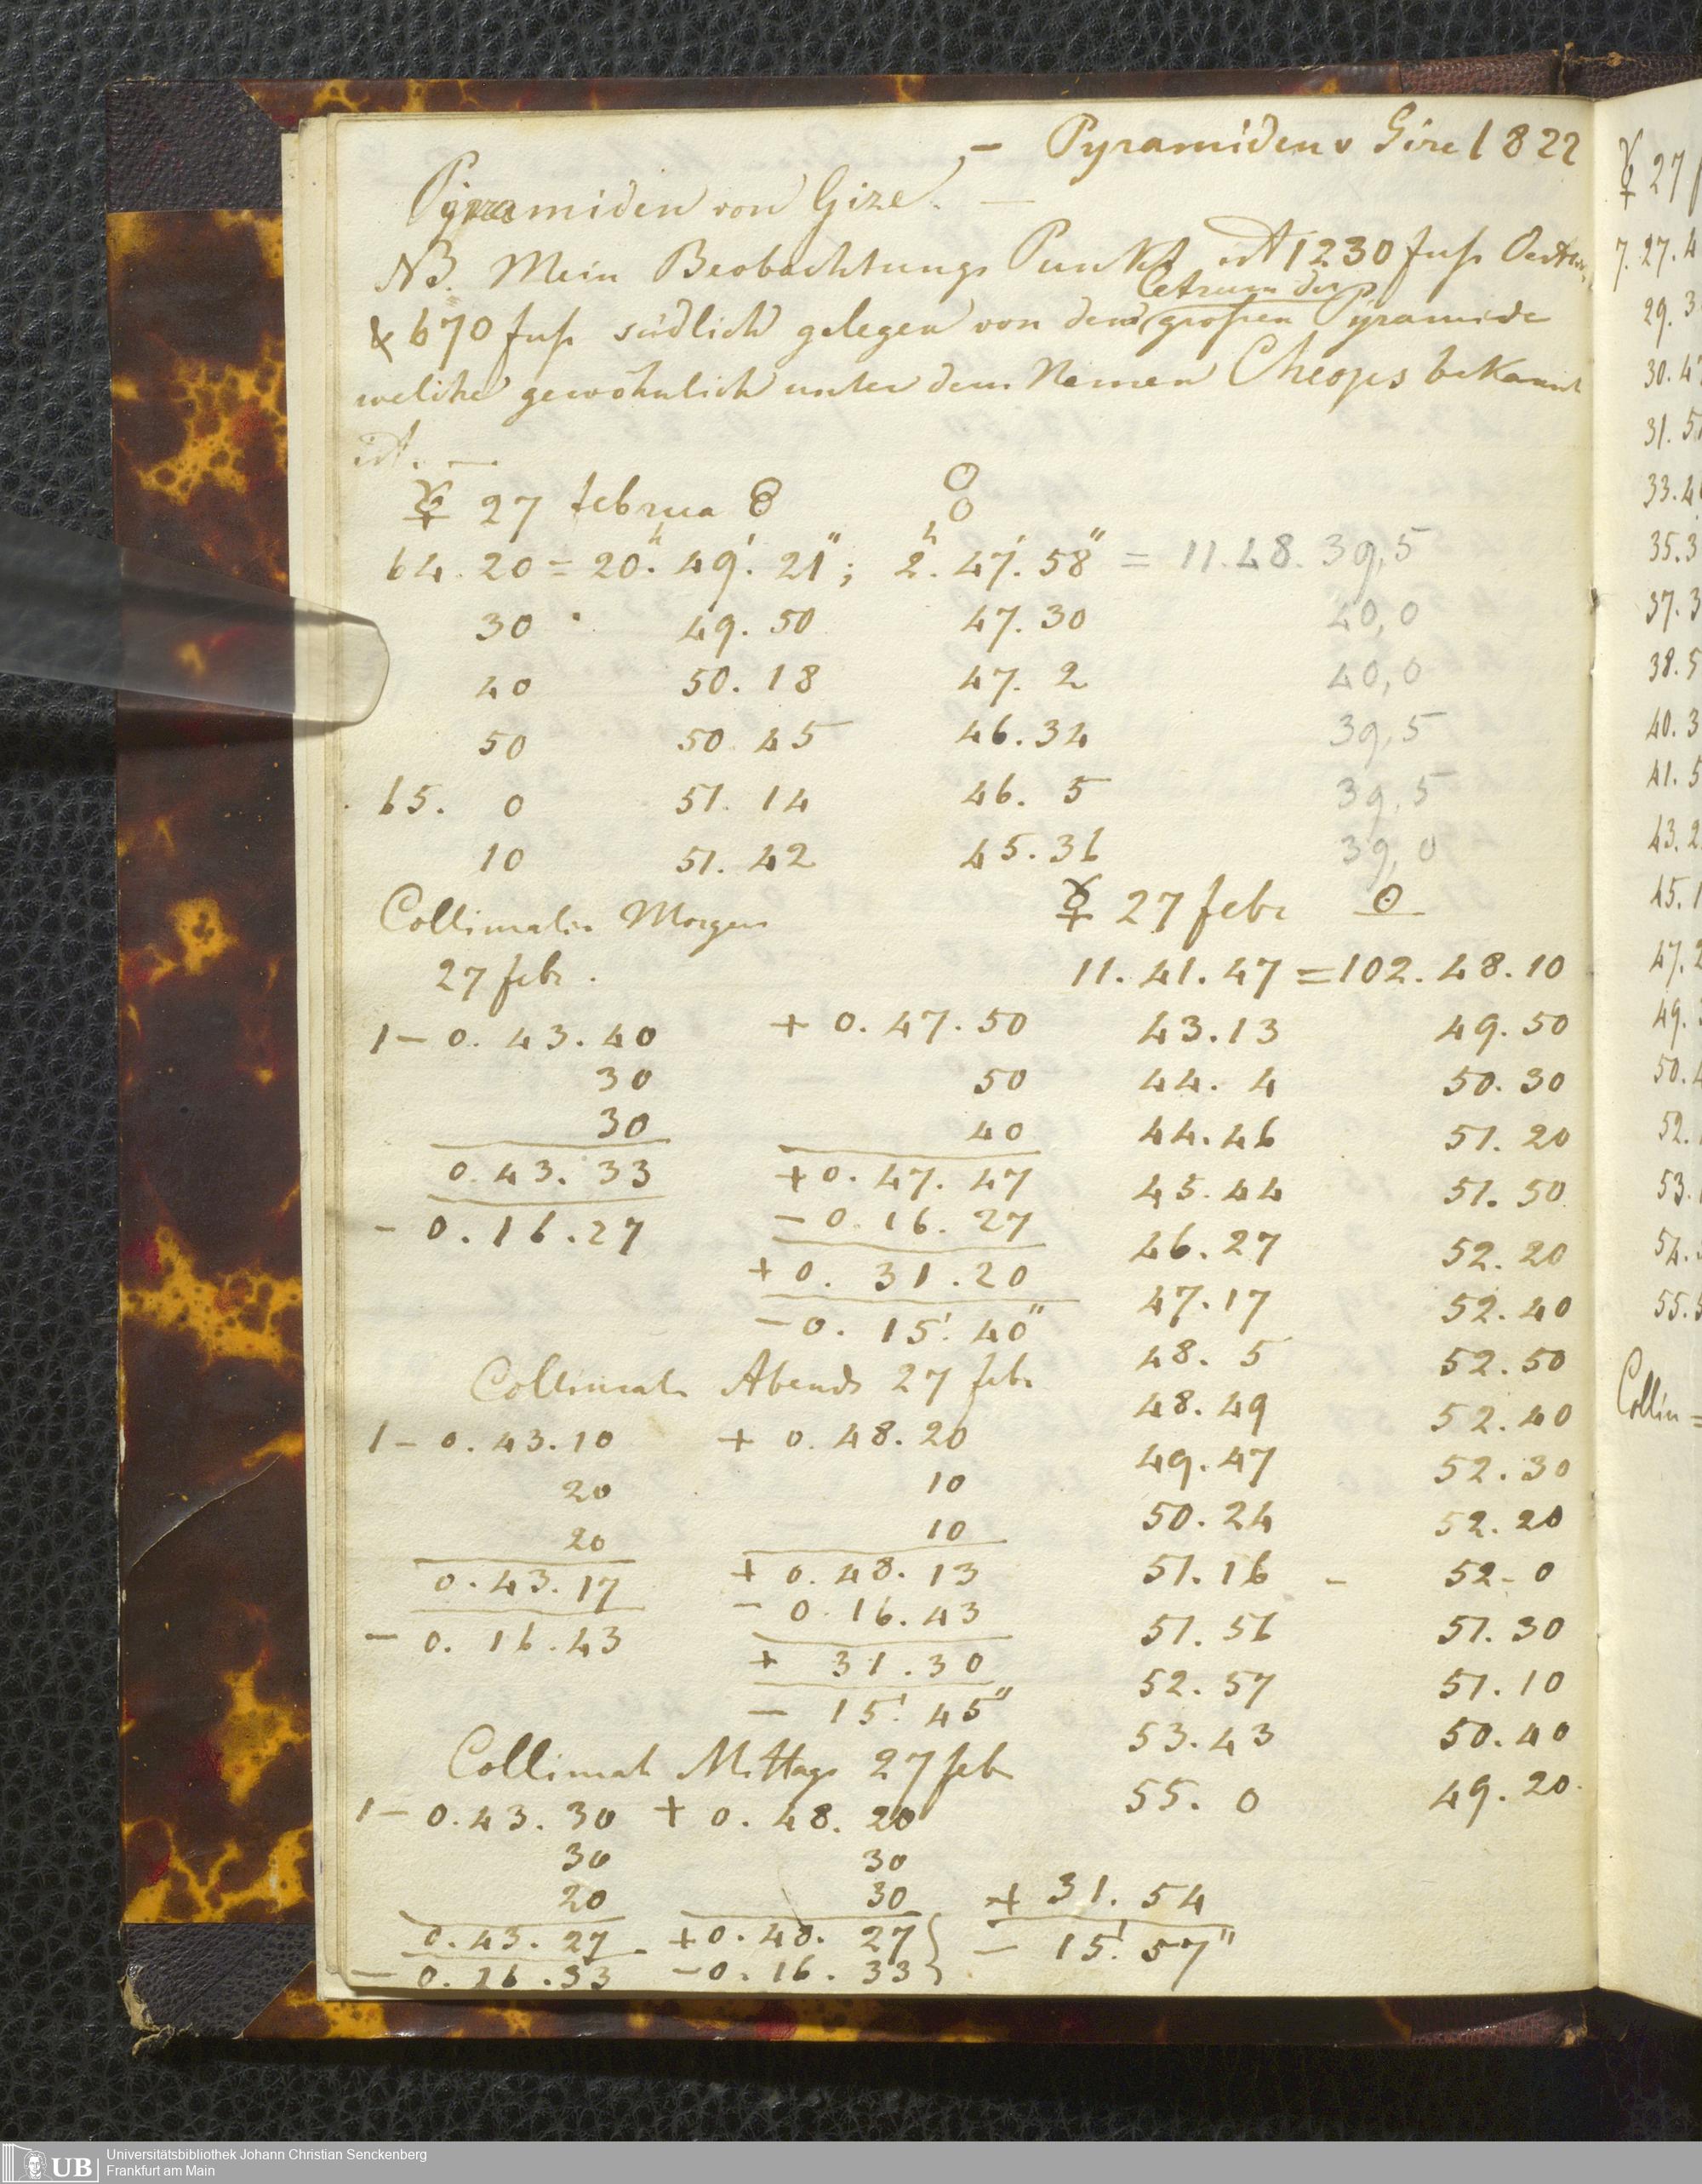 — Pyramiden v Gize 1822
Pyramiden von Gize. —
NB. Mein Beobachtungs Punkt ist 1230 fuß Oestlich
Cetrum der
& 670 fuß südlich gelegen von dem großen Pyramide
welche gewöhnlich unter dem Namen Cheops bekannt
ist. —
☿ 27 februa
64. 20 = 20.h 49.' 21"; 2.h 47.' 58" = 11.48. 39,5
30 49. 50 47. 30 40,0
40 50. 18 47. 2 40,0
50 50. 45 46. 34 39,5
65. 0 51. 14 46. 5 39,5
10 51. 42 45. 36 39,0
Collimatio Morgens
27 febr.
1 – 0. 43. 40 + 0. 47. 50
30 50
30 40
0. 43. 33 + 0. 47. 47
– 0. 16. 27 – 0. 16. 27
+ 0. 31. 20
– 0. 15.' 40"
Collimat Abends 27 febr
1 – 0. 43. 10 + 0. 48. 20
20 10
20 10
0. 43. 17 + 0. 48. 13
– 0. 16. 43 – 0. 16. 43
+ 31. 30
– 15.' 45"
Collimat Mittags 27 feb
1 – 0. 43. 30 + 0. 48. 20
30 30
20 30
0. 43. 27 + 0. 48. 27
– 0. 16. 33 – 0. 16. 33
+ 31. 54
– 15.' 57"
☿ 27 febr ☉
11. 41. 47 = 102. 48. 10
43. 13 49. 50
44. 4 50. 30
44. 46 51. 20
45. 44 51. 50
46. 27 52. 20
47. 17 52. 40
48. 5 52. 50
48. 49 52. 40
49. 47 52. 30
50. 24 52. 20
51. 16 – 52 – 0
51. 56 51. 30
52. 57 51. 10
53. 43 50. 40
55. 0 49. 20
☿ 27
7. 27. 4
29. 3
30. 4
31. 5
33. 4
35. 3
37. 3
38. 5
40. 3
41. 5
43. 2
45. 1
47. 2
49.
50. 4
52.
53.
54.
55. 5
Collim =
UB
Universitätsbibliothek Johann Christian Senckenberg
Frankfurt am Main